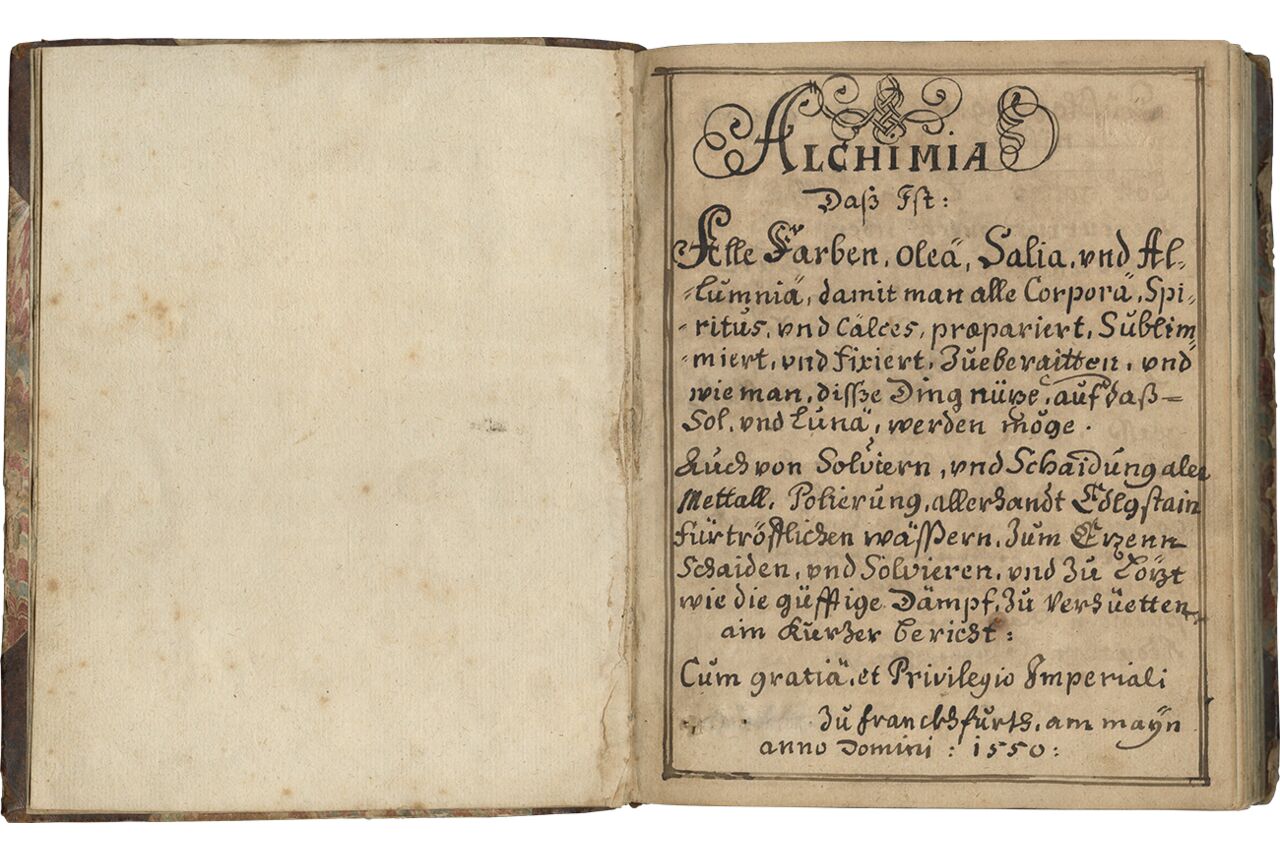 ALCHIMIA
Daß Ist:
Alle Farben, oleä, Salia, vnd Al-
-lumniä, damit man alle Corporä, Spi-
-ritus, vnd Calces, præpariert, Sublim-
-miert, vnd fixiert, Zueberaitten, vnd
wie man, disße Ding nüze, auf daß=
Sol, vnd Lunä, werden möge.
Auch von Solviern, vnd Schaidung aler
Mettall, Polierung, allerhandt Edlgstain
fürtröstlichen wässern, Zum Erzenn
Schaiden, vnd Solvieren, vnd Zu Lözt
wie die güfftige Dämpf, Zu verhüetten
ain Kurzer bericht:
Cum gratiä, et Privilegio Imperiali
Zu franckhfurth, am mayn
anno Domini: 1550: